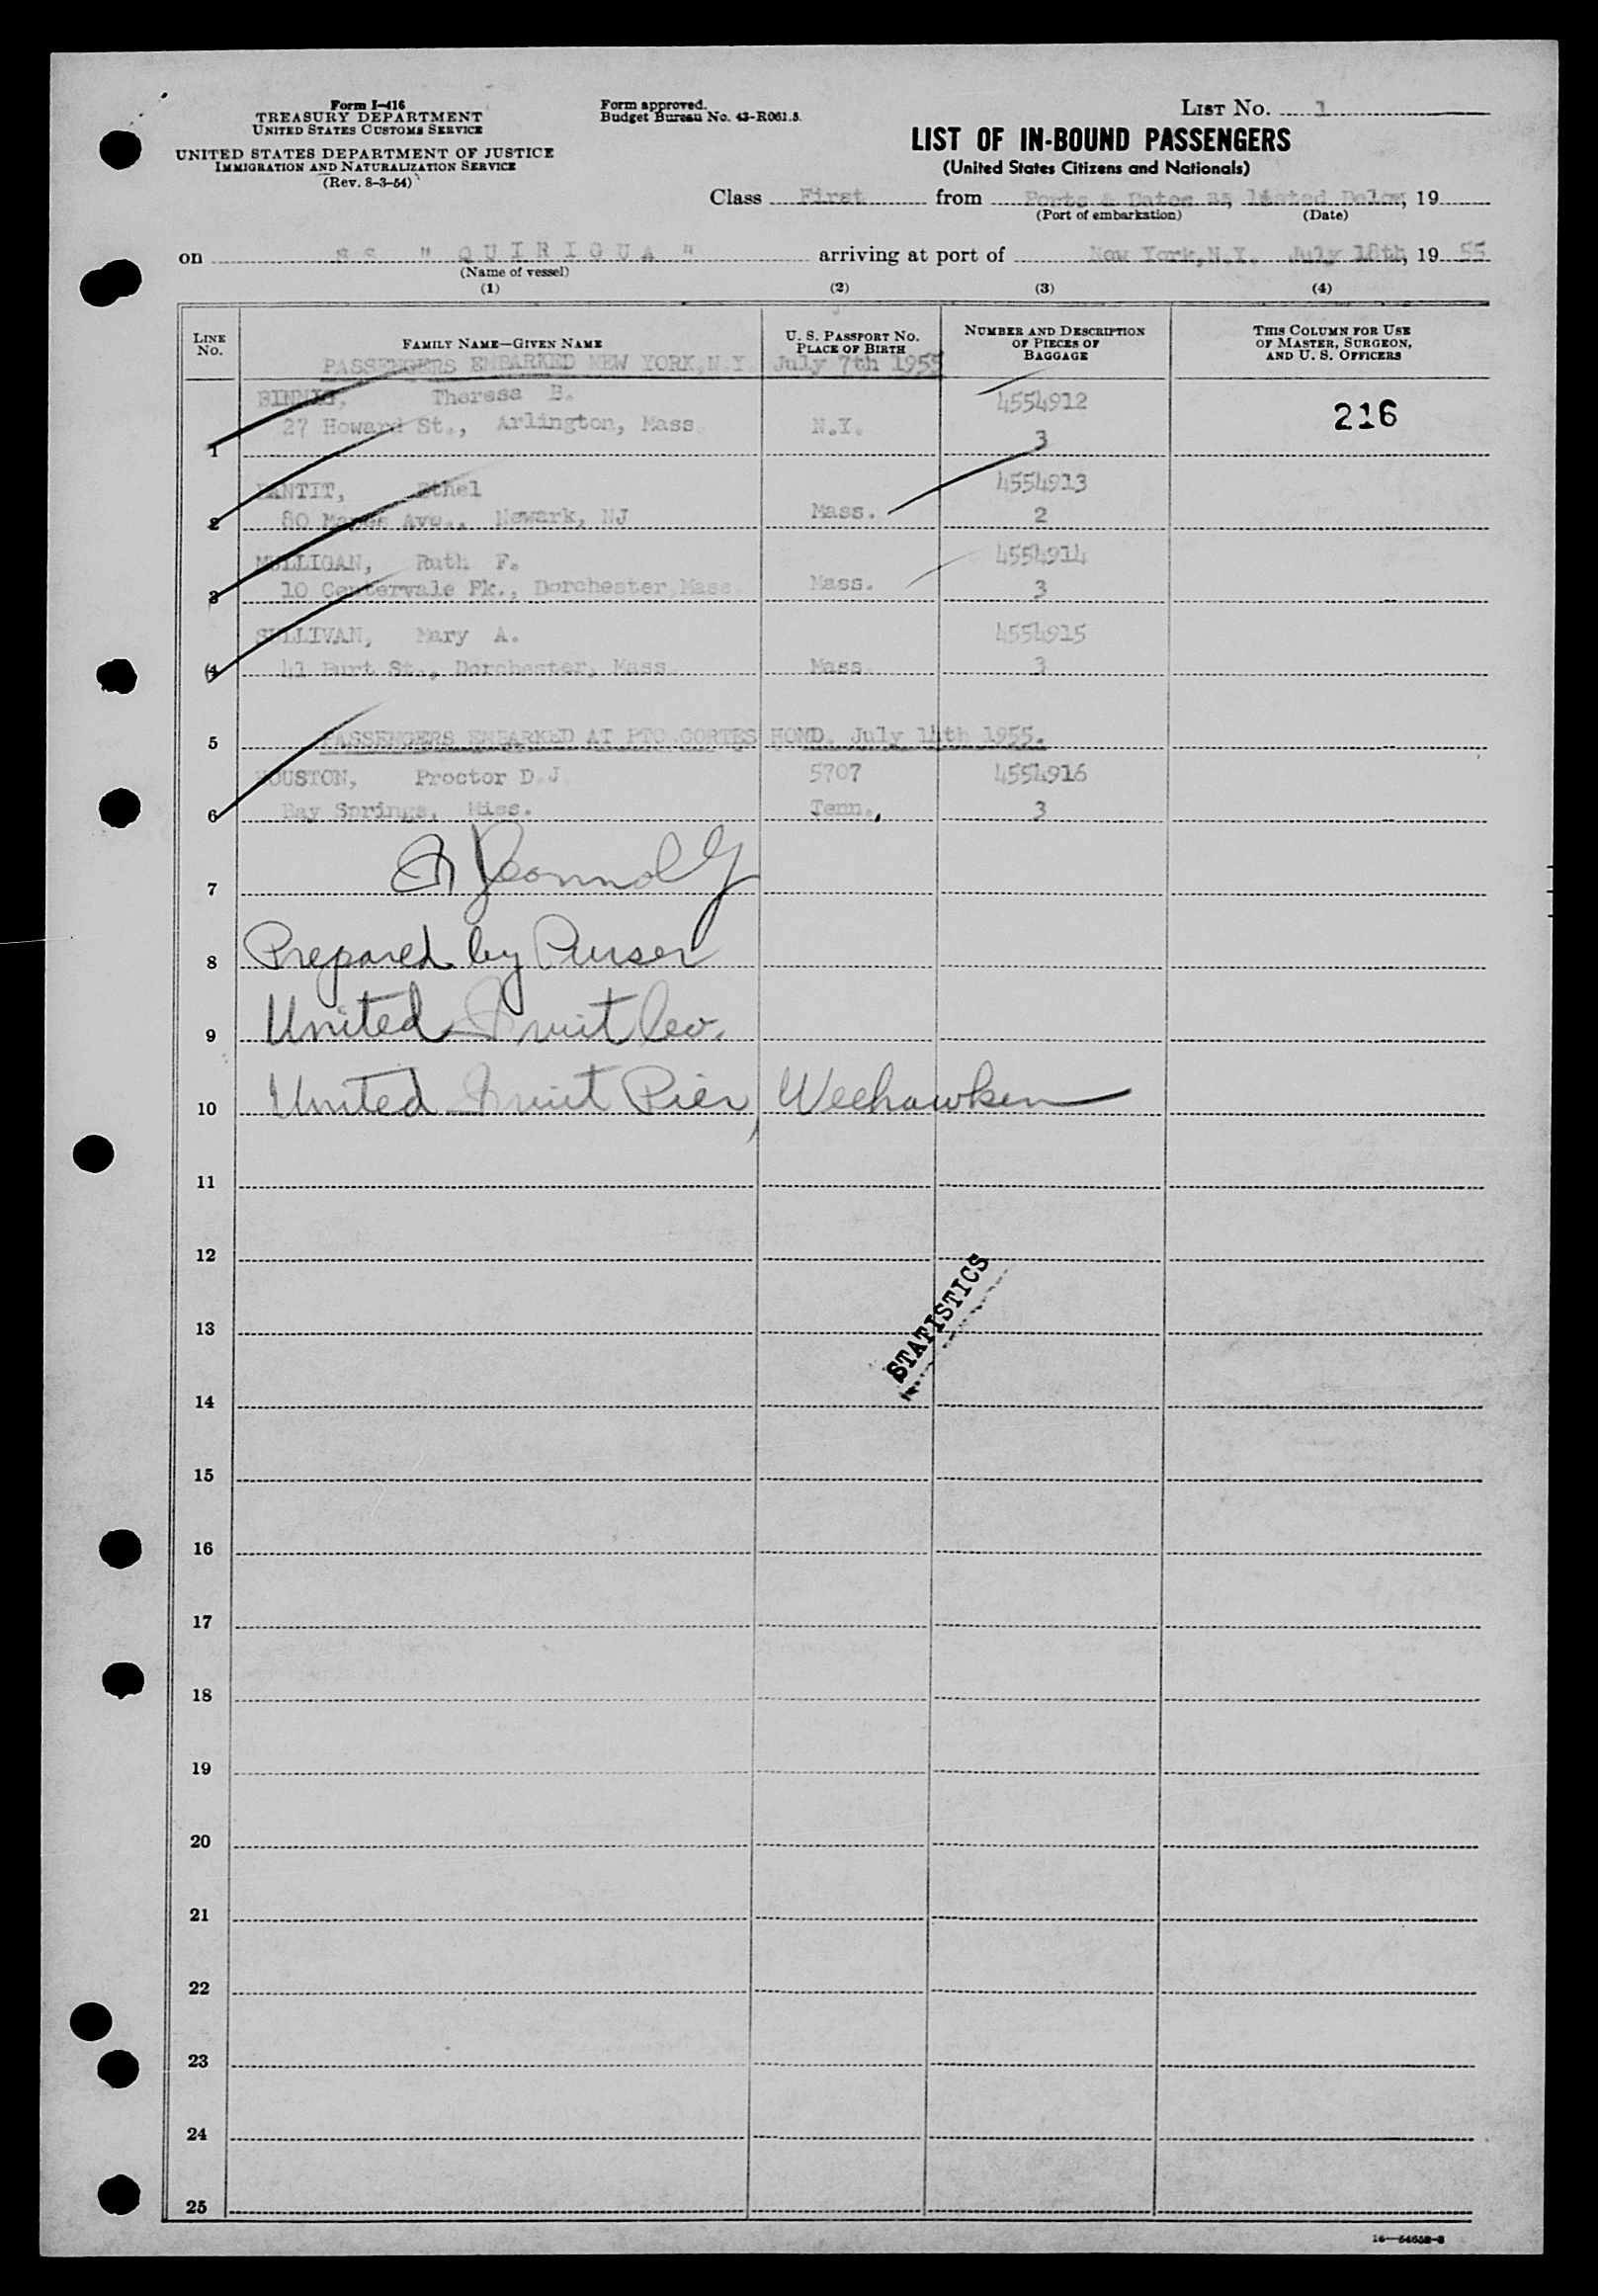 Form I-416
TREASURY DEPARTMENT
UNITED STATES CUSTOMS SERVICE
UNITED STATES DEPARTMENT OF JUSTICE
IMMIGRATION AND NATURALIZATION SERVICE
(Rev. 8-3-54)
Form approved.
Budget Bureau No. 43-R061.5.
LIST No. 1
LIST OF IN-BOUND PASSENGERS
(United States Citizens and Nationals)
Class First from Ports & Dates as listed Below, 19
(Port of embarkation) (Date)
on SS " QUIRIGUA " arriving at port of New York, N.Y. July 18th, 19 55
(Name of vessel)
(1) (2) (3) (4)
LINE No. FAMILY NAME—GIVEN NAME U. S. PASSPORT NO. PLACE OF BIRTH NUMBER AND DESCRIPTION OF PIECES OF BAGGAGE THIS COLUMN FOR USE OF MASTER, SURGEON, AND U. S. OFFICERS
PASSENGERS EMBARKED NEW YORK, N.Y. July 7th 1955
Theresa B. 4554912 216
1 27 Howard St., Arlington, Mass. N.Y. 3
Ethel 4554913
2 80 Ave., Newark, NJ Mass. 2
MULLIGAN, Ruth F. 4554914
3 10 Centervale Pk., Dorchester, Mass. Mass. 3
SULLIVAN, Mary A. 4554915
4 41 Burt St., Dorchester, Mass. Mass. 3
5 PASSENGERS EMBARKED AT PTO.CORTES HOND. July 14th 1955.
HOUSTON, Proctor D.J. 5707 4554916
6 Bay Springs, Miss. Tenn., 3
7
8 Prepared by Purser
9 United Fruit Co.
10 United Fruit Pier, Weehawken
11
12
STATISTICS
13
14
15
16
17
18
19
20
21
22
23
24
25